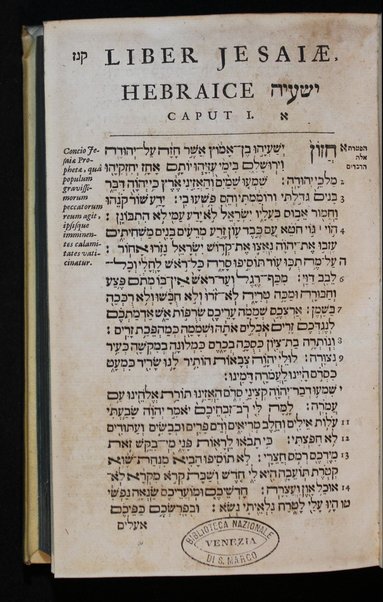 קנז
LIBER JESAIÆ,
HEBRAICE ישעיה
CAPUT I. א
Concio Je-
saiæ Pro-
phetæ, quâ
populum
gravissi-
morum
peccatorum
reum agit,
ipsique
imminen-
tes calami-
tates vati-
cinatur.
הפטרת
אלה
הדברים
א חֲזוֹן יְשַׁעְיָהוּ בֶן־אָמוֹץ אֲשֶׁר חָזָה עַל־יְהוּדָה
וִירוּשָׁלִָם בִּימֵי עֻזִּיָּהוּ יוֹתָם אָחָז יְחִזְקִיָּהוּ
2 מַלְכֵי יְהוּדָה: שִׁמְעוּ שָׁמַיִם וְהַאֲזִינִי אֶרֶץ כִּי יְהוָֹה דִּבֵּר
3 בָּנִים גִּדַּלְתִּי וְרוֹמַמְתִּי וְהֵם פָּשְׁעוּ בִי: יָדַע שׁוֹר קֹנֵהוּ
וַחֲמוֹר אֵבוּס בְּעָלָיו יִשְׂרָאֵל לֹא יָדַע עַמִּי לֹא הִתְבּוֹנָן:
4 הוֹי גּוֹי חֹטֵא עַם כֶּבֶד עָוֹן זֶרַע מְרֵעִים בָּנִים מַשְׁחִיתִים
עָזְבוּ אֶת־יְהוָֹה נִאֲצוּ אֶת־קְדוֹשׁ יִשְׂרָאֵל נָזֹרוּ אָחוֹר:
ה עַל מֶה תֻכּוּ עוֹד תּוֹסִיפוּ סָרָה כָּל־רֹאשׁ לָחֳלִי וְכָל־
6 לֵבָב דַּוָּי: מִכַּף־רֶגֶל וְעַד־רֹאשׁ אֵין־בּוֹ מְתֹם פֶּצַע
וְחַבּוּרָה וּמַכָּה טְרִיָּה לֹא־זֹרוּ וְלֹא חֻבָּשׁוּ וְלֹא רֻכְּכָה
7 בַּשָּׁמֶן: אַרְצְכֶם שְׁמָמָה עָרֵיכֶם שְׂרֻפוֹת אֵשׁ אַדְמַתְכֶם
לְנֶגְדְּכֶם זָרִים אֹכְלִים אֹתָהּ וּשְׁמָמָה כְּמַהְפֵּכַת זָרִים:
8 וְנוֹתְרָה בַת־צִיּוֹן כְּסֻכָּה בְכָרֶם כִּמְלוּנָה בְמִקְשָׁה כְּעִיר
9 נְצוּרָה: לוּלֵי יְהוָֹה צְבָאוֹת הוֹתִיר לָנוּ שָׂרִיד כִּמְעָט
כִּסְדֹם הָיִינוּ לַעֲמֹרָה דָּמִינוּ:
י שִׁמְעוּ דְבַר יְהוָֹה קְצִינֵי סְדֹם הַאֲזִינוּ תּוֹרַת אֱלֹהֵינוּ עַם
עֲמֹרָה: לָמָּה לִּי רֹב־זִבְחֵיכֶם יֹאמַר יְהוָֹה שָׂבַעְתִּי
11 עֹלוֹת אֵילִים וְחֵלֶב מְרִיאִים וְדַם פָּרִים וּכְבָשִׂים וְעַתּוּדִים
12 לֹא חָפָצְתִּי: כִּי תָבֹאוּ לֵרָאוֹת פָּנָי מִי־בִקֵּשׁ זֹאת
13 מִיֶּדְכֶם רְמֹס חֲצֵרָי: לֹא תוֹסִיפוּ הָבִיא מִנְחַת־שָׁוְא
קְטֹרֶת תּוֹעֵבָה הִיא לִי חֹדֶשׁ וְשַׁבָּת קְרֹא מִקְרָא לֹא־
14 אוּכַל אָוֶן וַעֲצָרָה: חָדְשֵׁיכֶם וּמוֹעֲדֵיכֶם שָׂנְאָה נַפְשִׁי
טו הָיוּ עָלַי לָטֹרַח נִלְאֵיתִי נְשֹׂא: וּבְפָרִשְׂכֶם כַּפֵּיכֶם
אעלים
BIBLIOTECA NAZIONALE
VENEZIA
DI S. MARCO